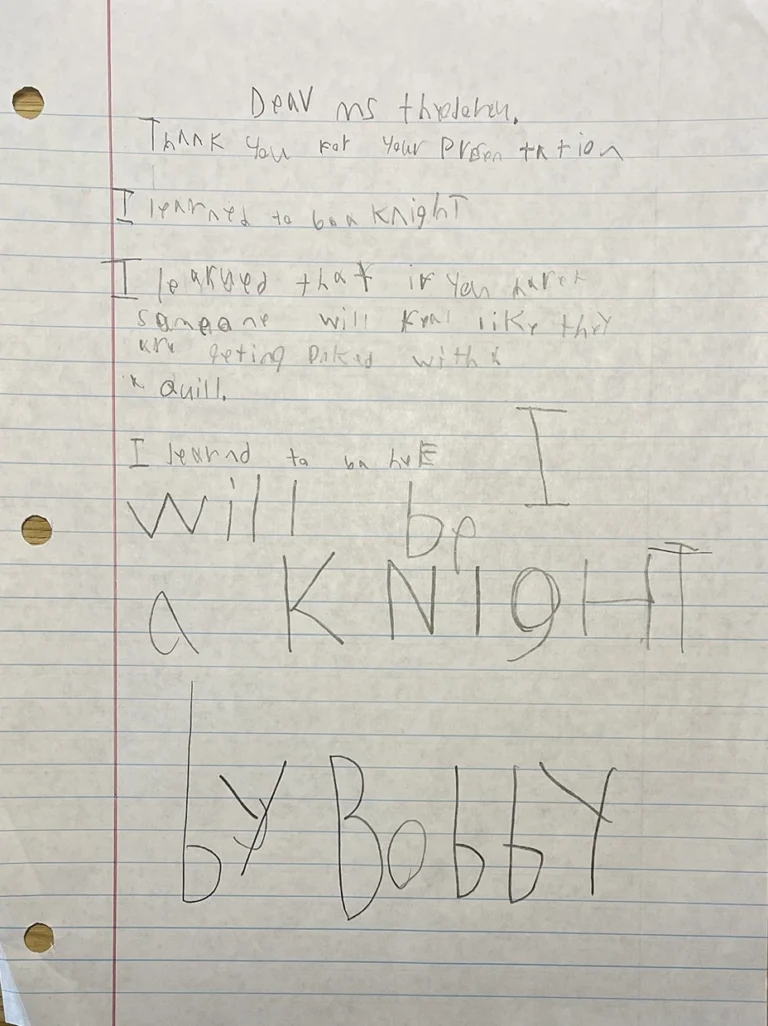 Dear ms
Thank you for your presentation
I learned to bea Knight
I learned that if you
someone will feel like they
are geting poked with
a quill.
I learnd to be
I
will be
a KNigHT
by BobbY